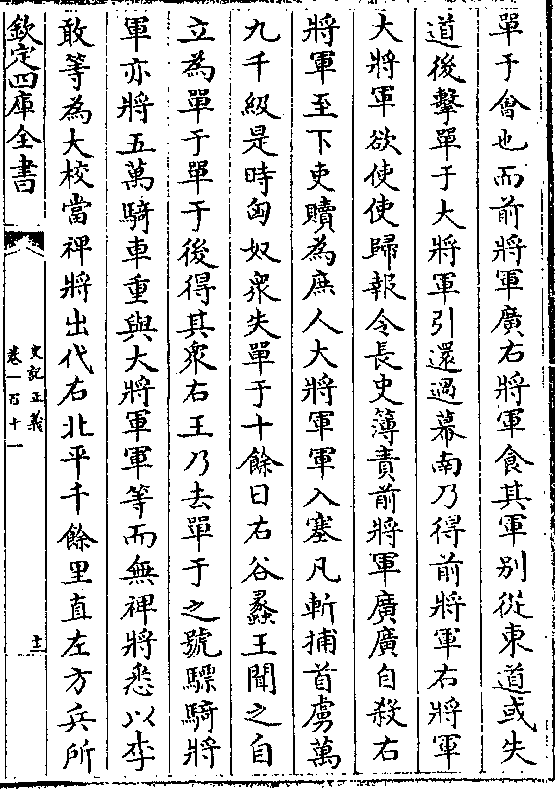 單于會也而前將軍廣右將軍食其軍別從東道或失
道後擊單于大將軍引還過幕南乃得前將軍右將軍
大將軍欲使使歸報令長史簿責前將軍廣廣自殺右
將軍至下吏贖為庶人大將軍軍入塞凡斬捕首虜萬
九千級是時匈奴衆失單于十餘日右谷蠡王聞之自
立為單于單于後得其衆右王乃去單于之號驃騎將
軍亦將五萬騎車重與大將軍軍等而無裨將悉以李
敢等為大校當裨將出代右北平千餘里直左方兵所
欽定四庫全書
史記正義
卷一百十一
十三